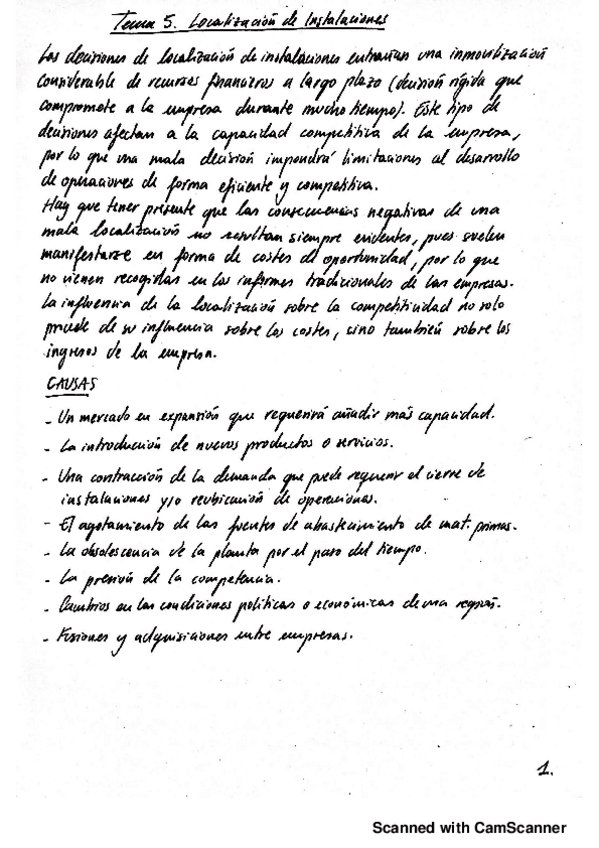 Tema 5. Localización de Instalaciones
Las decisiones de localización de instalaciones entrañan una inmovilización
considerable de recursos financieros a largo plazo (decisión rígida que
compromete a la empresa durante mucho tiempo). Este tipo de
decisiones afectan a la capacidad competitiva de la empresa,
por lo que una mala decisión impondrá limitaciones al desarrollo
de operaciones de forma eficiente y competitiva.
Hay que tener presente que las consecuencias negativas de una
mala localización no resultan siempre evidentes, pues suelen
manifestarse en forma de costes de oportunidad, por lo que
no vienen recogidas en los informes tradicionales de las empresas.
La influencia de la localización sobre la competitividad no solo
procede de su influencia sobre los costes, sino también sobre los
ingresos de la empresa.
CAUSAS
- Un mercado en expansión que requerirá añadir más capacidad.
- La introducción de nuevos productos o servicios.
- Una contracción de la demanda que puede requerir el cierre de
instalaciones y/o reubicación de operaciones.
- El agotamiento de las fuentes de abastecimiento de mat. primas.
- La obsolescencia de la planta por el paso del tiempo.
- La presión de la competencia.
- Cambios en las condiciones políticas o económicas de una región.
- Fusiones y adquisiciones entre empresas.
1.
Scanned with CamScanner